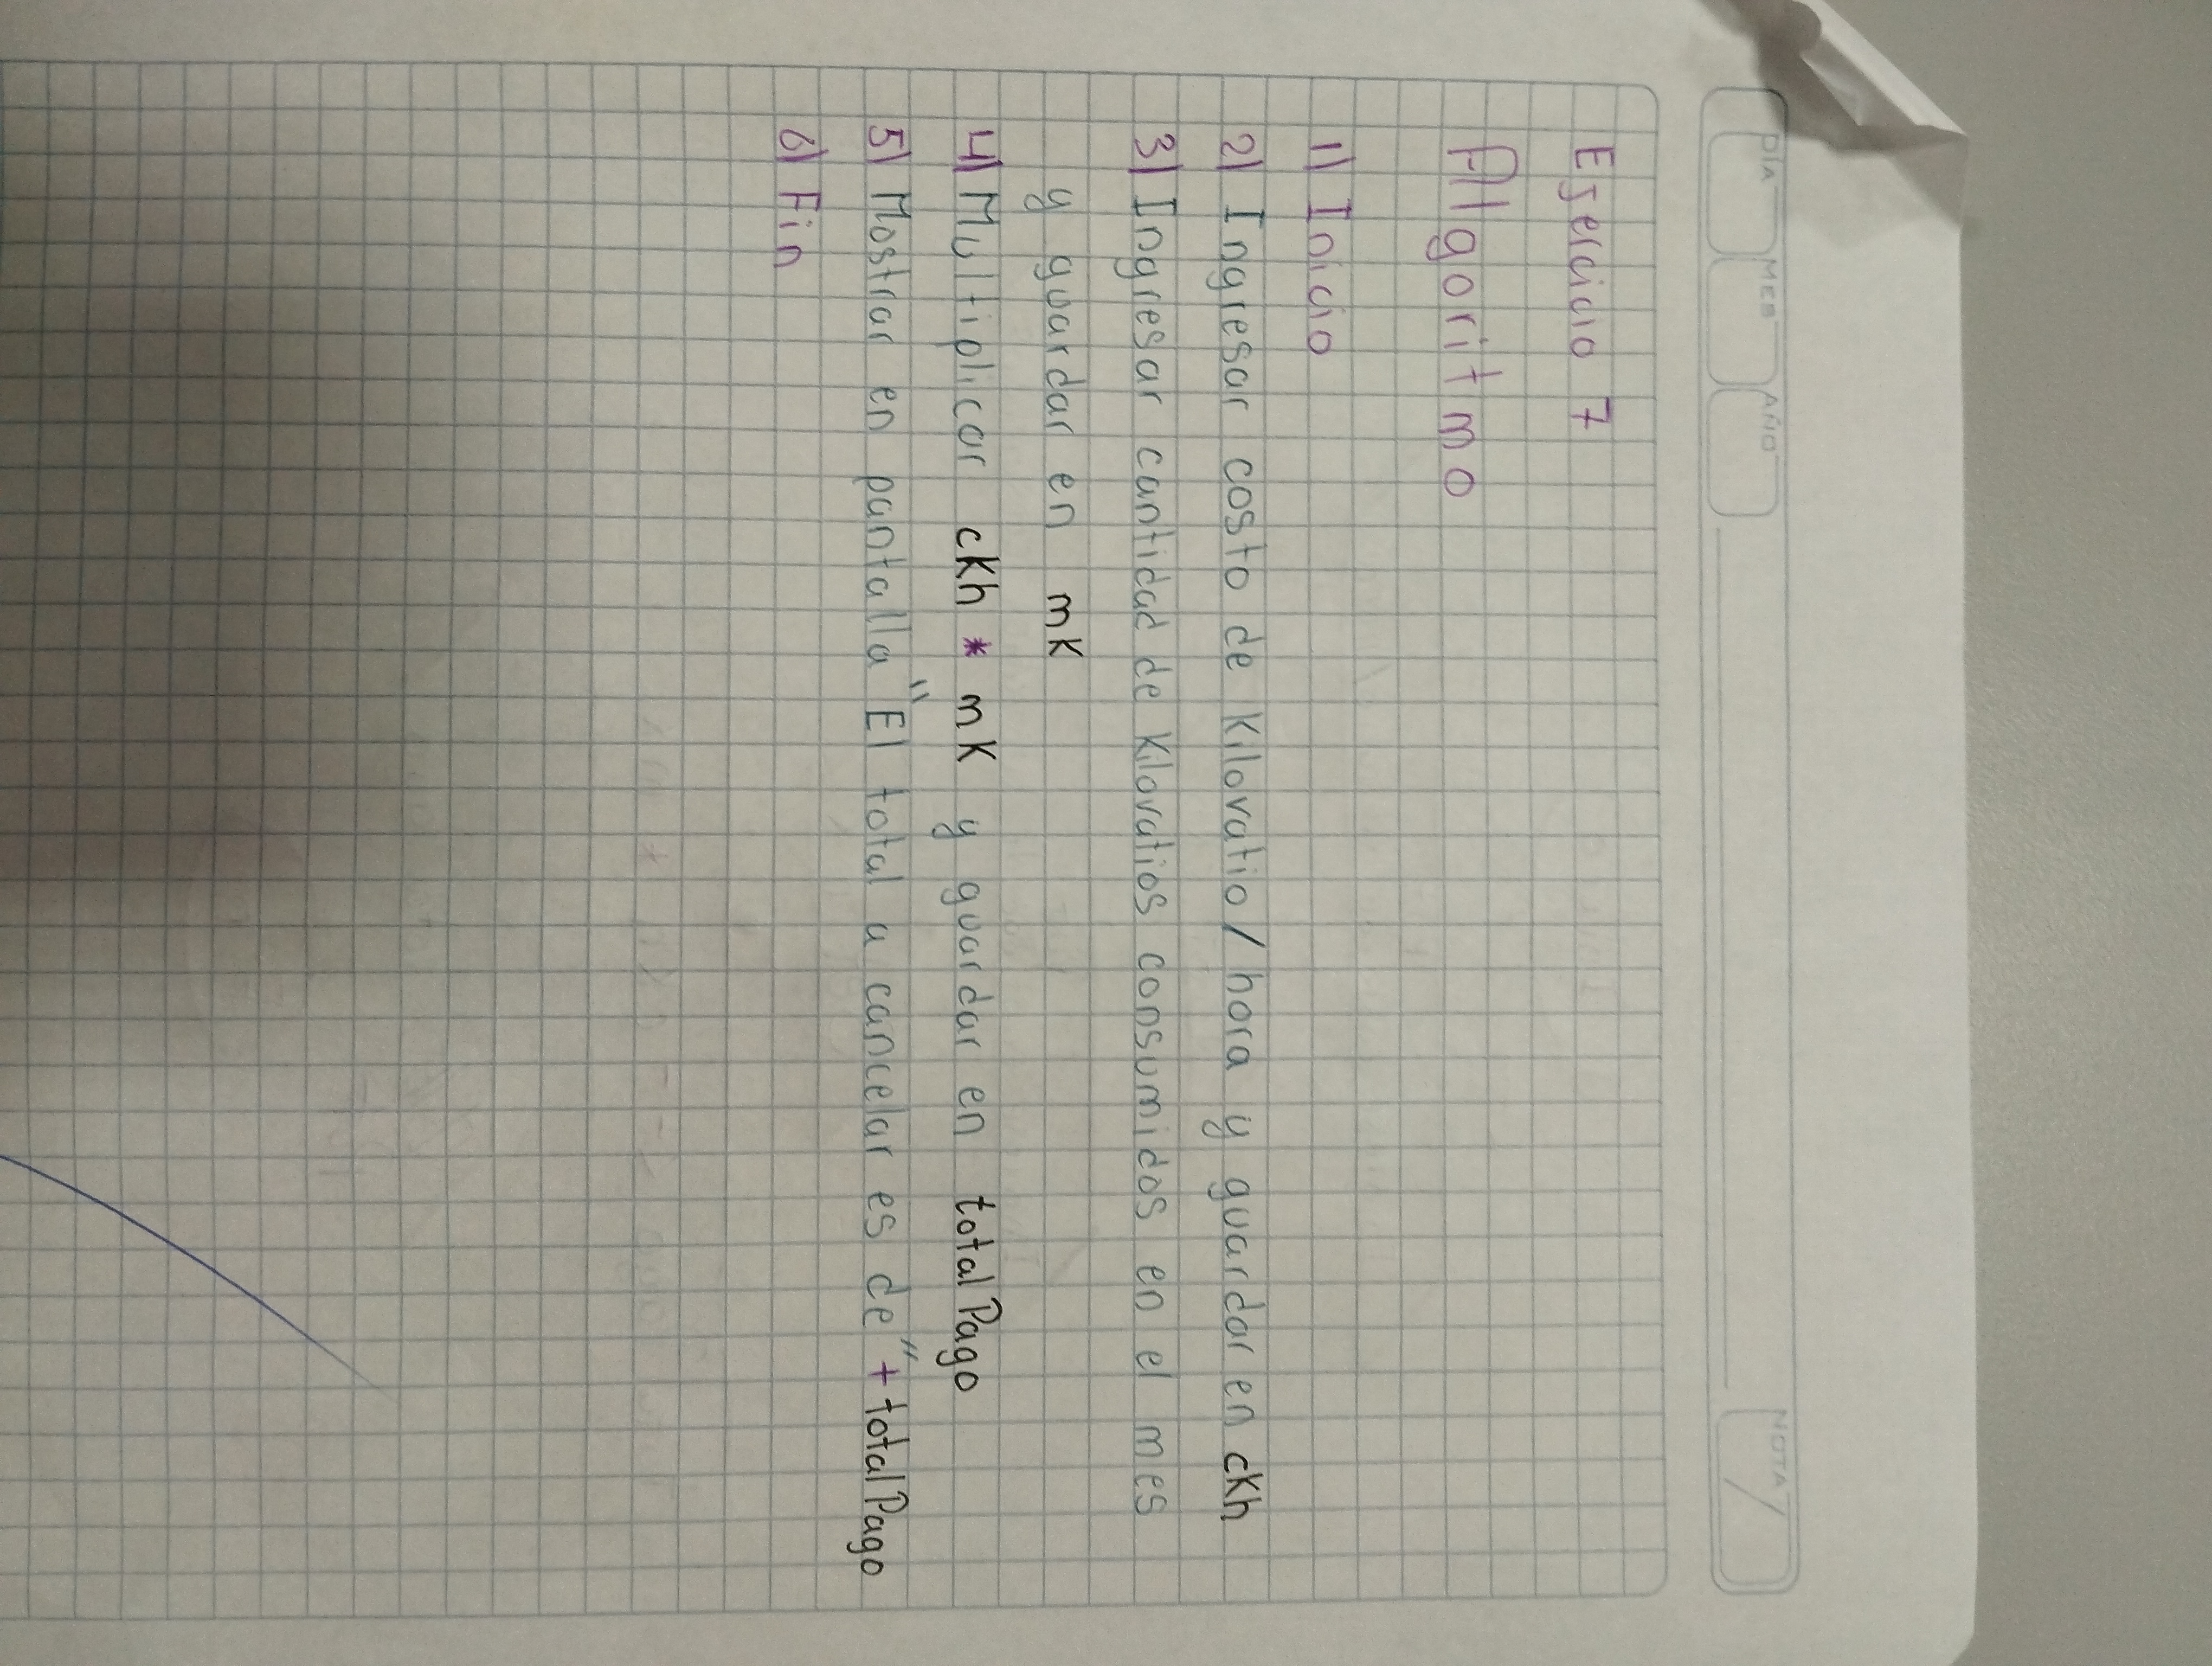 DÍA MES AÑO NOTA
Ejercicio 7
Algoritmo
1) Inicio
2) Ingresar costo de Kilovatio/hora y guardar en cKh
3) Ingresar cantidad de Kilovatios consumidos en el mes
y guardar en mK
4) Multiplicar cKh * mK y guardar en totalPago
5) Mostrar en pantalla "El total a cancelar es de" + totalPago
6) Fin